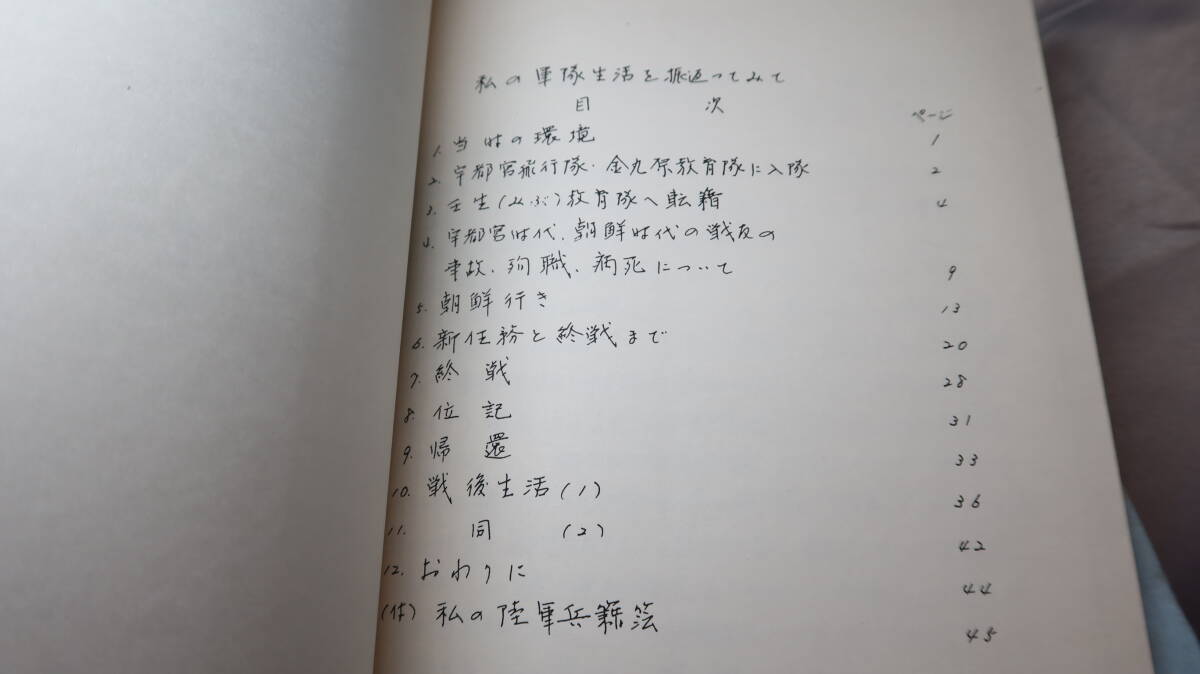 私の軍隊生活を振返ってみて
目次
ページ
1. 当時の環境 1
2. 宇都宮飛行隊・金丸原教育隊に入隊 2
3. 壬生(みぶ)教育隊へ転籍 4
4. 宇都宮時代、朝鮮時代の戦友の
事故、殉職、病死について 9
5. 朝鮮行き 13
6. 新任務と終戦まで 20
7. 終戦 28
8. 位記 31
9. 帰還 33
10. 戦後生活(1) 36
11. 同(2) 42
12. おわりに 44
(付) 私の陸軍兵籍簿 45